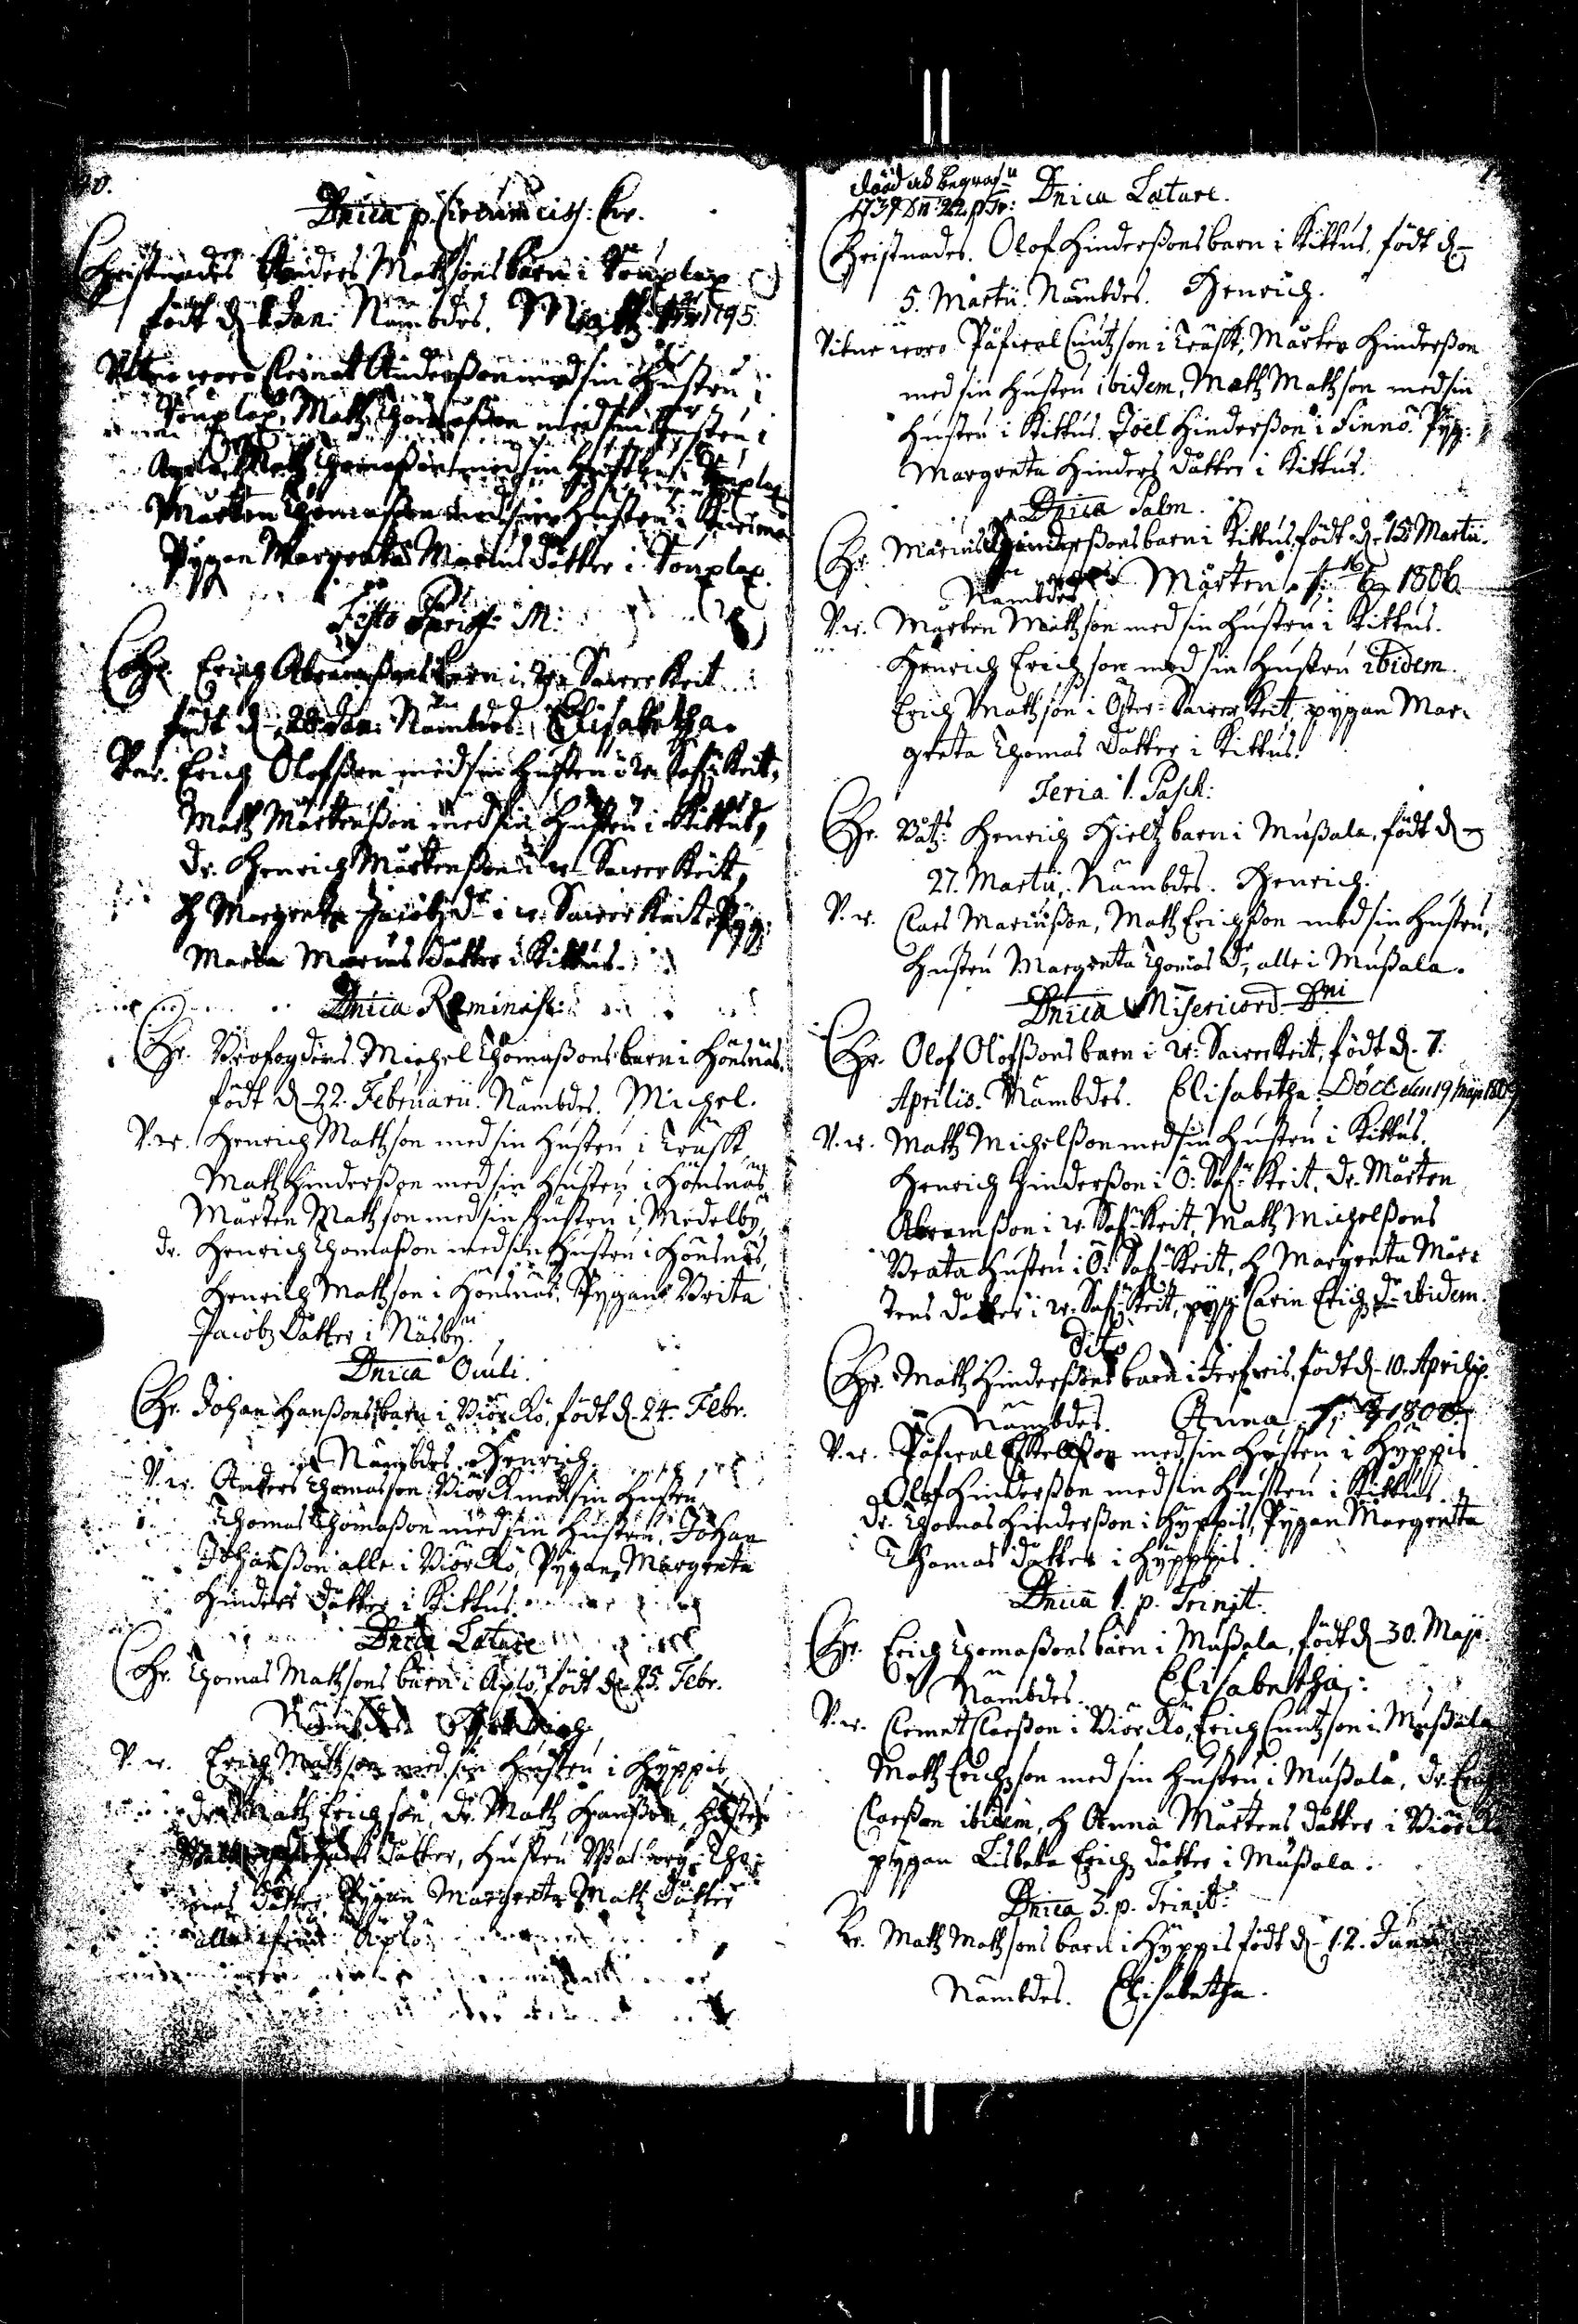 Dnica p. Circumcis: Chr.
Christnades Anders Mattsons barn i Souplax
födt d. Jan: Nämbdes. Matz 1795.
Vitne woro Clemet Anderßon med sin Hustru i
Souplax, Matz Thomaßon med sin Hustru i
Matz Thomaßon med sin Hustru i Souplax
Mårten Thomaßon med sin Hustru i
Pygan Margreta Marcus dåtter i Souplax.
Festo Purif: M:
Chr. Erich Abramßons barn i W. Sawerkeit
födt d. 28 Jan: Nämbdes. Elisabetha.
V.w. Erich Olofßon med sin Hustru i W. Saf:keit,
Matz Mårtenßon med sin Hustru i Kittus,
dr. Henrich Mårtenßon i w. Sawerkeit,
H Margreta Jacobz dr i w. Sawerkeit Pyg:
Maria Marcus dåtter i Kittus.
Dnica Reminisc:
Chr. Michel Thomaßons barn i Hönsnäs,
födt d. 22. Februarii. Nämbdes. Michel.
V.w. Henrich Mattson med sin Hustru i Träsk,
Matz Hinderßon med sin Hustru i Hönsnäs
Mårten Mattson med sin Hustru i Medelby,
dr. Henrich Thomaßon med sin Hustru i Hönsnäs,
Henrich Mattson i Hönsnäs, Pygan Brita
Jacobz dåtter i Näsby.
Dnica Oculi.
Chr. Johan Hanßons barn i Biörckö, födt d. 24. Febr.
Nämbdes. Henrich.
V.w. Anders Thomasson i Biörck: med sin Hustru
Thomas Thomaßon med sin Hustru, Johan
Johanßon alle i Biörckö, Pygan Margreta
Hinders dåtter i Kittus.
Dnica Lætare
Chr. Thomas Mattsons barn i Aplö, födt d. 25. Febr.
Nämbdes.
V.w. Erich Mattson med sin Hustru i Hyppis
dr. Matz Erichson, dr. Matz Hanßon, Hustru
dåtter, Hustru Walborg Tho-
mas dåtter, Pygan Margreta Matz dåtter
alle ifrån Aplö.
död ock begrafn
1737 Dn: 22. p Tr: Dnica Lætare.
Christnades. Olof Hinderßons barn i Kittus, födt d.
5. Martii. Nämbdes. Henrich.
Vitne woro Påfwal Cuntzson i Träsk, Mårten Hinderßon
med sin Hustru ibidem, Matz Mattson med sin
Hustru i Kittus. Joël Hinderßon i Finnö. Pyg:
Margreta Hinders dåtter i Kittus.
Dnica Palm.
Chr. Marcus Hinderßons barn i Kittus, födt d. 15 Martii.
Nämbdes Mårten 1806
V.w. Mårten Mattson med sin Hustru i Kittus.
Henrich Erichson med sin Hustru ibidem.
Erich Mattson i Öster-Sawerkeit, pygan Mar-
greta Thomas dåtter i Kittus.
Feria 1. Pasch:
Chr. Båtz: Henrich Hieltz barn i Mußala, födt d.
27. Martii, Nämbdes. Henrich.
V.w. Claes Marcußon, Matz Erichßon med sin Hustru,
Hustru Margreta Thomas dr, alle i Mußala.
Dnica Misericord Dni
Chr. Olof Olofßons barn i W. Sawerkeit, födt d. 7.
Aprilis. Nämbdes. Elisabetha. Död den 19 Maji 1809
V.w. Matz Michelßon med sin Hustru i Kittus.
Henrich Hinderßon i Ö. Saf:keit, dr. Mårten
Abramßon i w. Saf:keit, Matz Michelßons
Beata Hustru i Ö. Saf:keit, H Margreta Mår-
tens dåtter i w. Saf:keit, pyg: Carin Erichz dr ibidem.
Dito
Chr. Matz Hinderßons barn i Jerfweis, födt d. 10. Aprilis.
Nämbdes. Anna 1800
V.w. Påfwal Eskelßon med sin Hustru i Hyppis
Olof Hinderßon med sin Hustru i Kittus.
dr. Thomas Hinderßon i Hyppis, Pygan Margreta
Thomas dåtter i Hyppis.
Dnica 1. p. Trinit:
Chr. Erich Thomaßons barn i Mußala, födt d. 30. Maji.
Nämbdes. Elisabetha:
V.w. Clemet Claeßon i Biörckö, Erich Cuntzson i Mußala
Matz Erichson med sin Hustru i Mußala, dr. Erich
Claeßon ibidem, H Anna Mårtens dåtter i Biörckö
pygan Lisbeta Erichz dåtter i Mußala.
Dnica 3. p. Trinit:
Chr. Matz Mattsons barn i Hyppis födt d. 12. Junii
Nämbdes. Elisabetha.